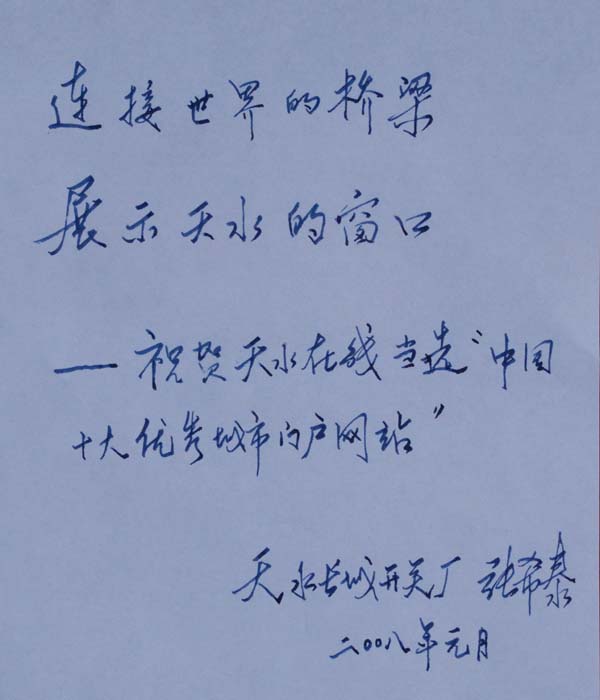 连接世界的桥梁
展示天水的窗口
——祝贺天水在线当选“中国
十大优秀城市门户网站”
天水长城开关厂 张希泰
二〇〇八年元月